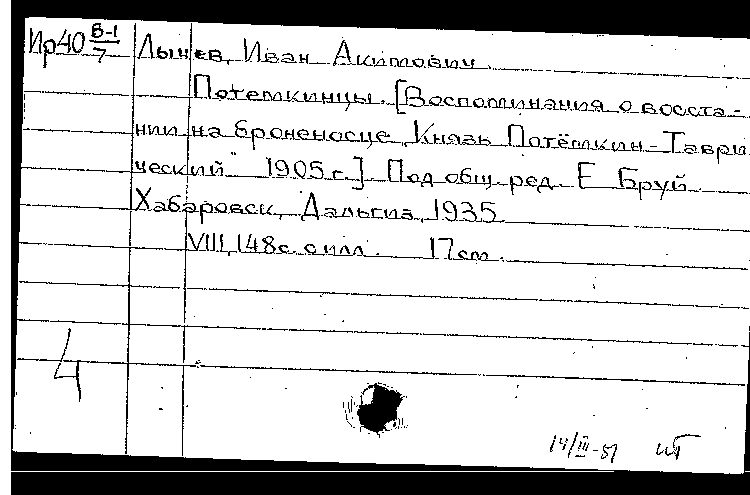 Ир40 В-1/7 Лычев, Иван Акимович.
Потемкинцы. [Воспоминания о восста-
нии на броненосце „Князь Потёмкин-Таври
ческий" 1905 г.] Под общ. ред. Е. Бруй.
Хабаровск, Дальгиз, 1935.
VIII, 148 с. с илл. 17 см.
4
14/III-51